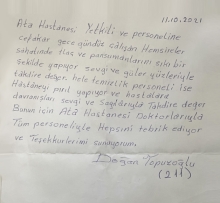 11.10.2021
Ata Hastanesi Yetkili ve personeline
cefakar gece gündüz çalışan Hemşireler
sahabinde ilaç ve pansumanlarını sıkı bir
şekilde yapıyor sevgi ve güler yüzleriyle
takdire değer, hele temizlik personeli ise
Hastaneyi pırıl yapıyor ve hastalara
davranışları sevgi ve Saygılarıyla Takdire değer
Bunun için Ata Hastanesi Doktorlarıyla
Tüm personeliyle Hepsini tebrik ediyor
ve Teşekkürlerimi sunuyorum.
Doğan Topuzoğlu
(211)